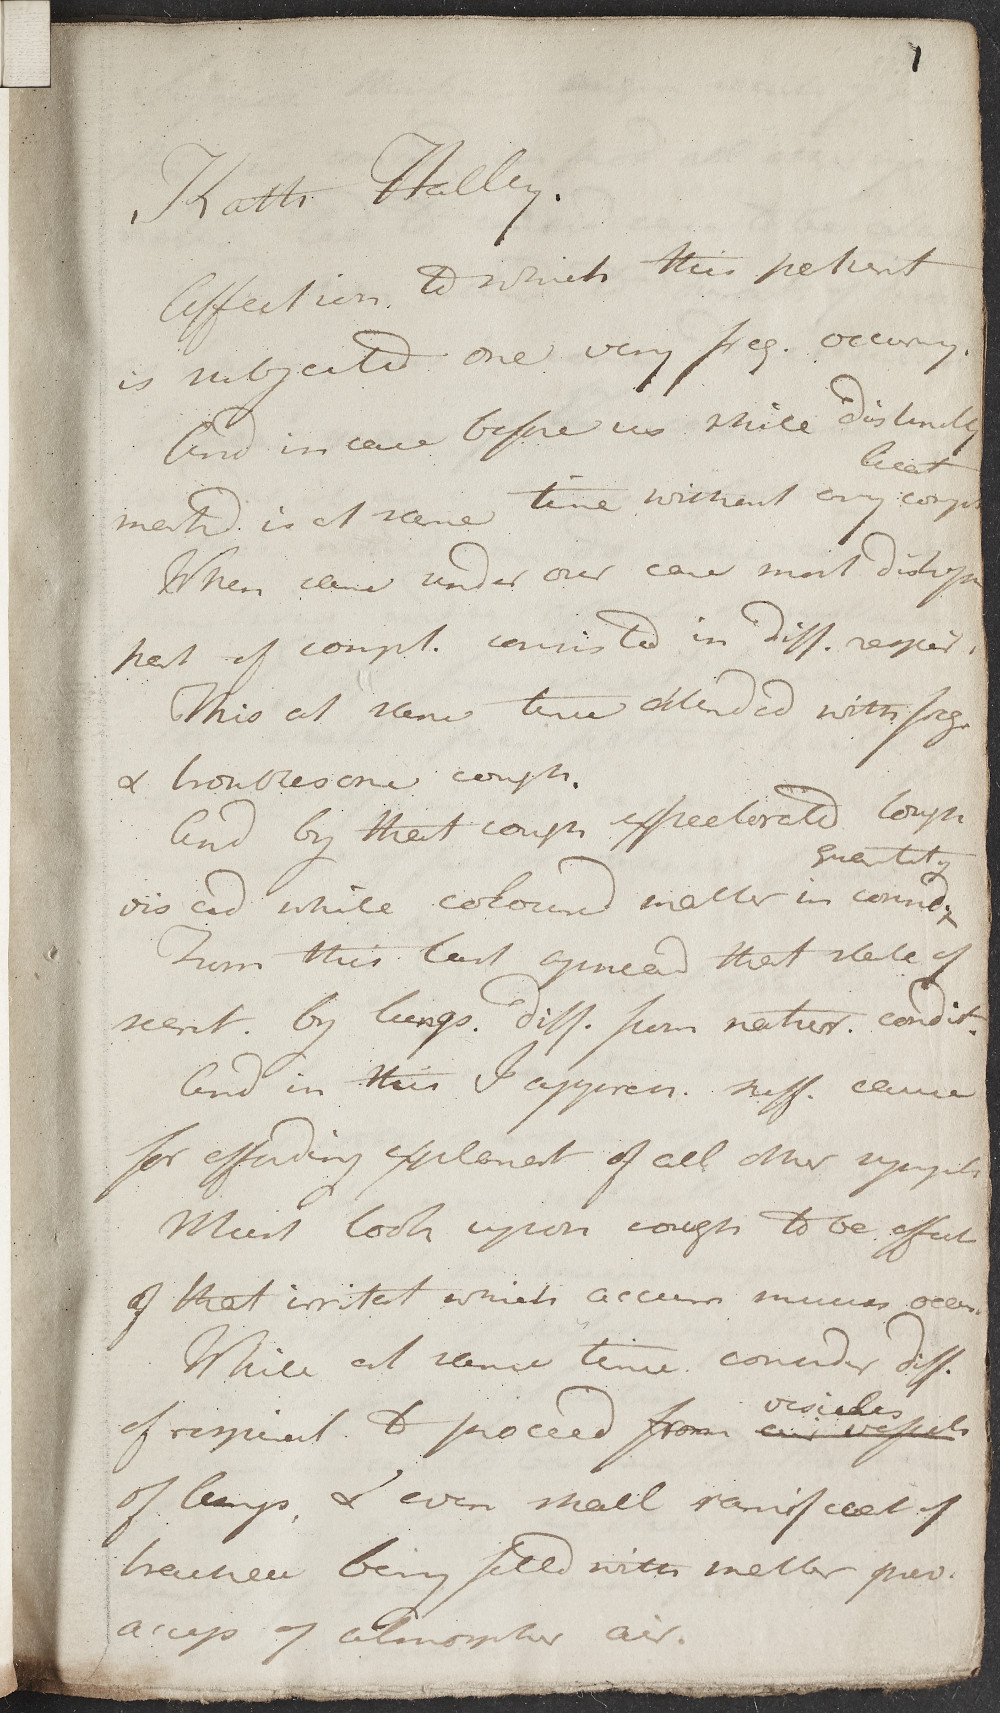 1
Kath Halley.
Affection to which this patient
is subjected one very freq. occurring.
And in case before us while distinctly
heat
markd. is at same time without any compl
When came under our care most distress
part of compl. consisted in diff. respir.
This at same time attended with freq.
& troublesome cough.
And by that cough expectorated tough
quantity
viscid white coloured matter in consid.
From this last appeard that state of
secret. by lungs. diff. from natur. condit.
And in this I apprehen. suff. cause
for affording explanat of all other sympts
Must look upon cough to be effect
of that irritat which accum mucus occas.
While at same time consider diff.
of respirat to proceed from
vesicles
air vessels
of lungs, & even small ramificat of
tracheae being filled with matter prev.
access of atmospher air.